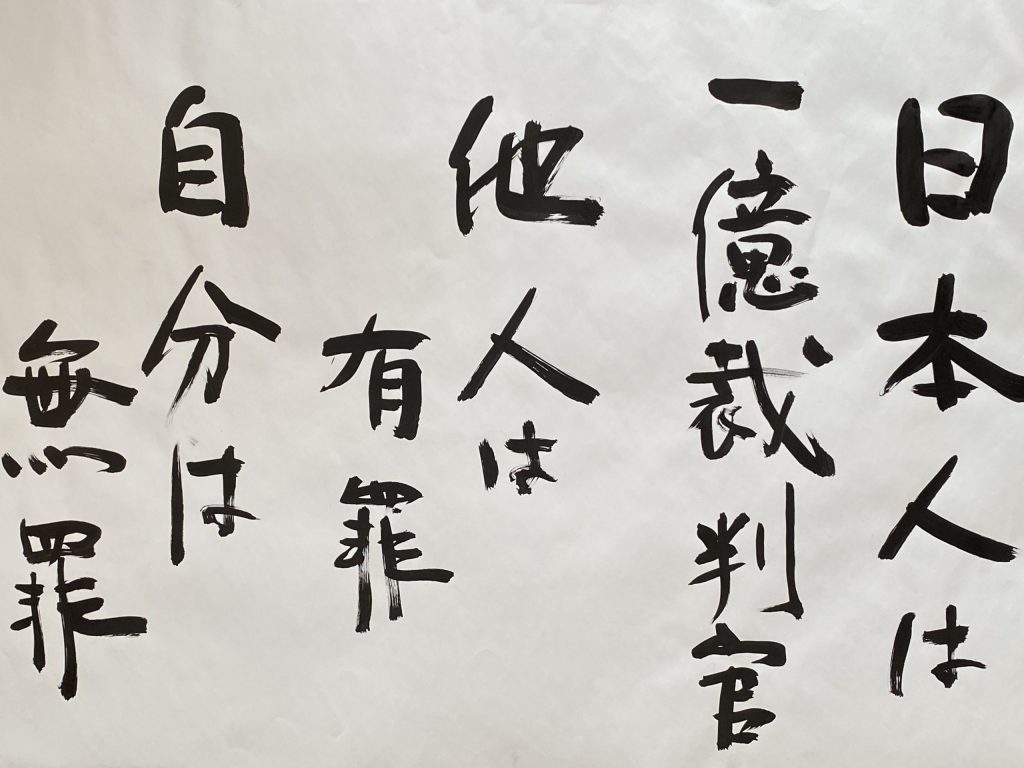 日本人は
一億裁判官
他人は
有罪
自分は
無罪